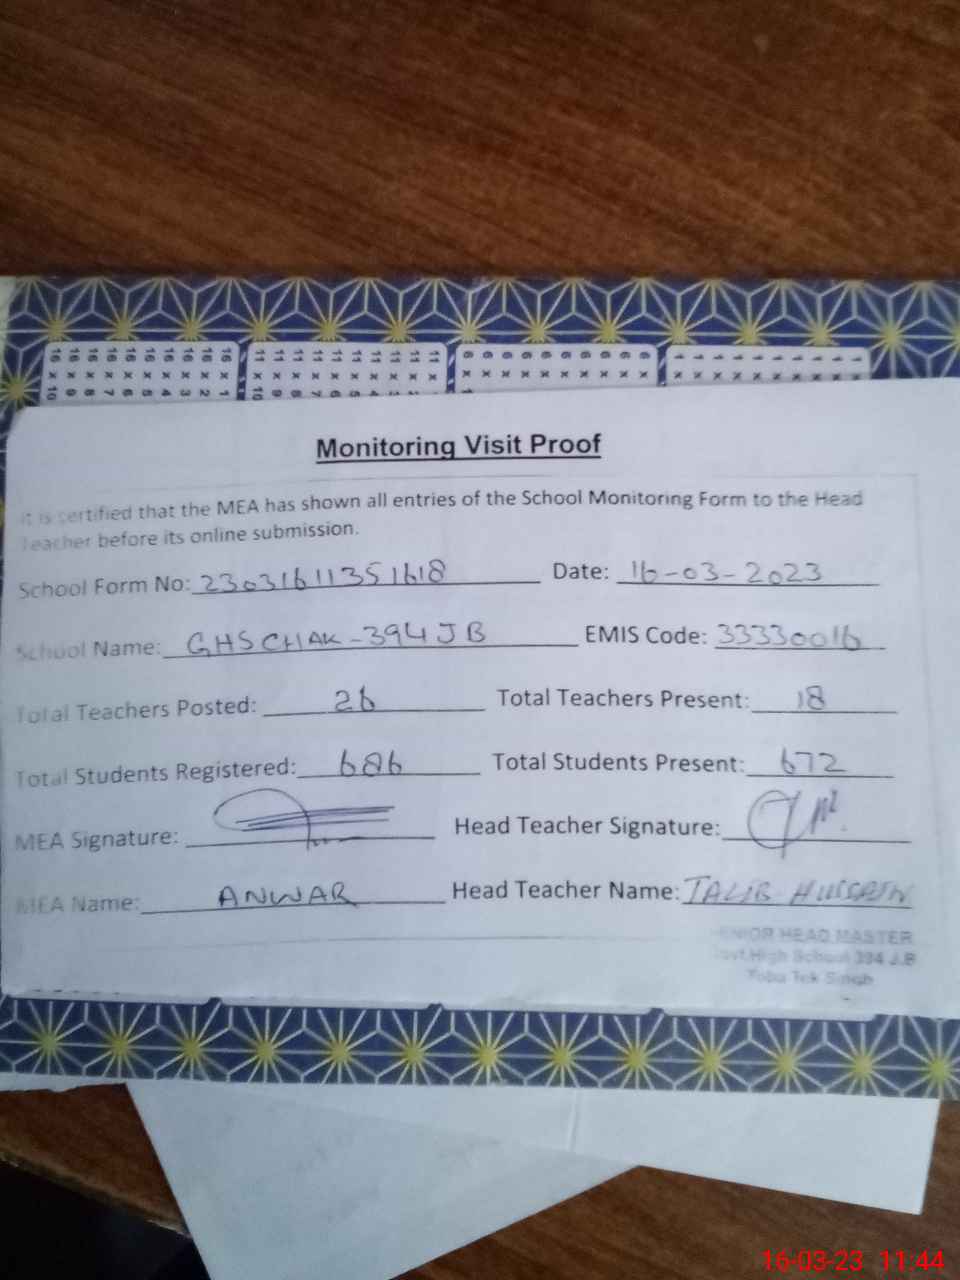 16 x 10 16 x 9 16 x 8 16 x 7 16 x 6 16 x 5 16 x 4 16 x 3 16 x 2 16 x 1
Monitoring Visit Proof
It is certified that the MEA has shown all entries of the School Monitoring Form to the Head
Teacher before its online submission.
School Form No: 23031611351618 Date: 16-03-2023
School Name: GHS CHAK-394 JB EMIS Code: 33330016
Total Teachers Posted: 26 Total Teachers Present: 18
Total Students Registered: 686 Total Students Present: 672
MEA Signature: Head Teacher Signature:
MEA Name: ANWAR Head Teacher Name: TALIB HUSSAIN
SENIOR HEAD MASTER
Govt. High School 394 J.B
Toba Tek Singh
16-03-23 11:44